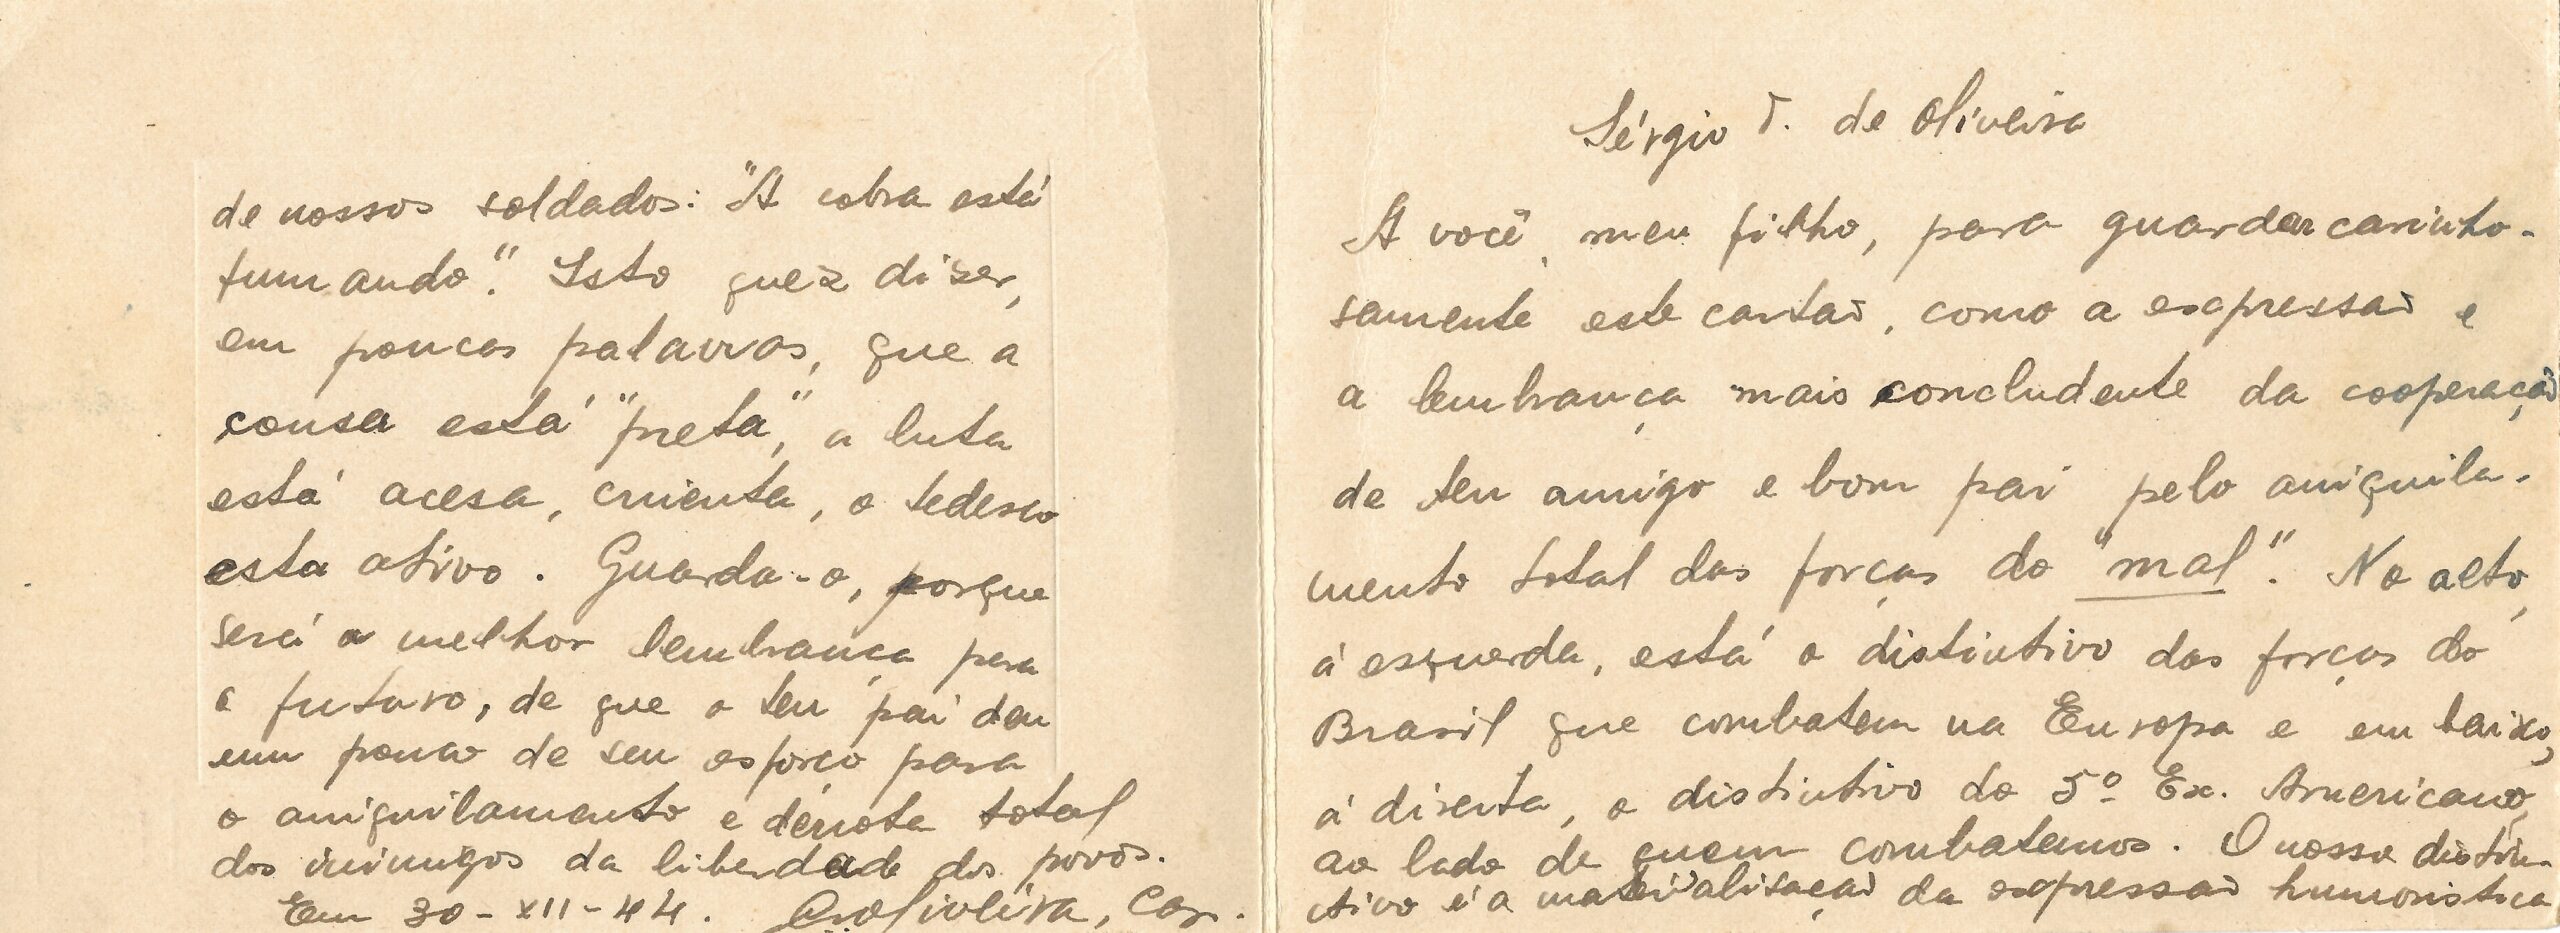 Sérgio T. de Oliveira
A você, meu filho, para guardar carinho-
samente este cartão, como a expressão e
a lembrança mais concludente da cooperação
de teu amigo e bom pai pelo aniquila-
mento total das forças do "mal". No alto,
á esquerda, está o distintivo das forças do
Brasil que combatem na Europa e em baixo,
á direita, o distintivo do 5º Ex. Americano,
ao lado de quem combatemos. O nosso distin-
tivo é a materialisação da expressão humoristica
de nossos soldados: "A cobra está
fumando". Isto quez diser,
em poucas palavras, que a
cousa está "preta", a luta
está acesa, cruenta, o tedesco
esta ativo. Guarda-o, porque
será a melhor lembrança para
o futuro, de que o teu pai deu
um pouco de seu esforço para
o aniquilamento e derrota total
dos inimigos da liberdade dos povos.
Em 30-XII-44. Oliveira, Cap.